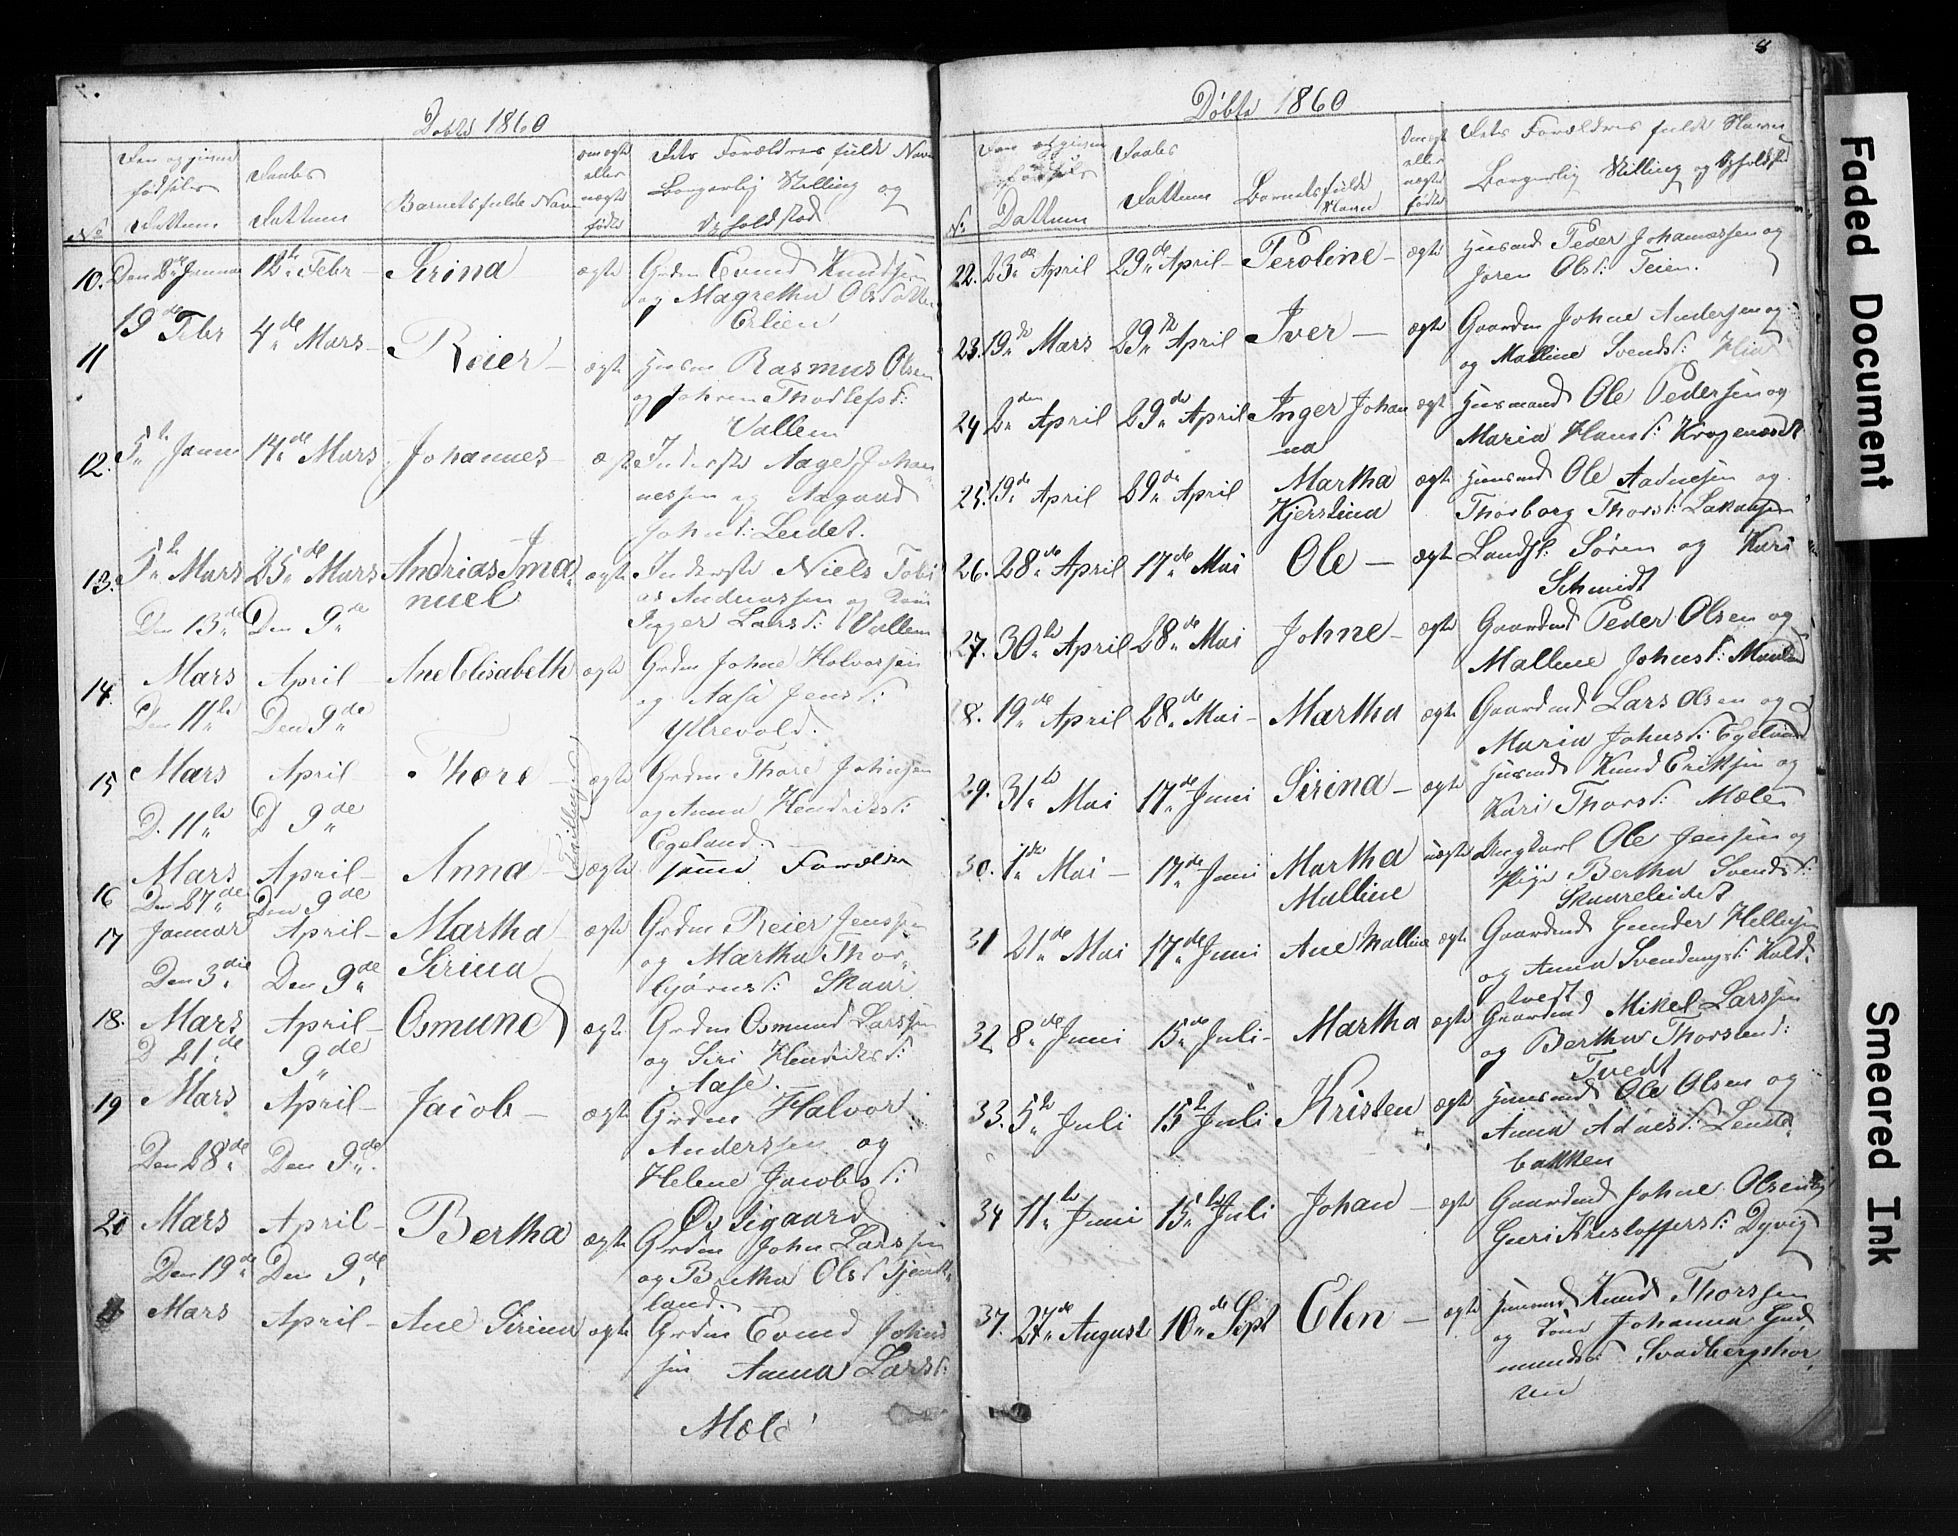 8
Døbte 1860
No
Den og givne
fødsels
Dattum
Daabs
Dattum
Barnets fulde Navn
om ægte
eller
uægte
fødte
Dets Forældres fulde Navn
Borgerlig Stilling og
Opholdsted
10. Den 2de Januar 12te Febr - Sirina ægte Grdm Evind Knudsen
og Magretha Olsdatter
Erlien
11 19de Febr 4de Mars - Reier - ægte Husm Rasmus Olsen
og Johren Thodlefsd:
Vallem
12. 5te Januar 14de Mars Johannes - ægte Inderste Aage Johan
nessen og Aagaard
Johnsd: Leidet.
13. 5te Mars 25de Mars Andrias Ima ægte Inderste Niels Tobi
nuel
as Andreassen og Kone
Inger Larsd: Vallem
14. Den 13de Mars Den 9de April - Ane Elisabeth ægte Grdm Johne Halvorsen
og Aase Jensd:
Ytrevold.
15 Den 11te Mars Den 9de April - Thore - ægte Grdm Thore Johnsen
og Anna Hendriksd:
Egeland.
Tvillinger
16 D. 11te Mars D 9de April - Anna - ægte samme Forældre
17 Den 27de Januar Den 9de April - Martha ægte Grdm Reier Jenssen
Sirina
og Martha Thor
bjørnsd: Skaar
18. Den 3die Mars Den 9de April - Osmund ægte Grdm Osmund Larssen
og Siri Hendriksd:
Aase.
19 D 21de Mars 9de April - Jacob - ægte Grdm Halvor
Anderssen og
Helene Jacobsd:
20 Den 28de Mars Den 9de April - Bertha ægte Grdm John Larssen
og Bertha Olsd
land.
Den 19de Mars Den 9de April - Ane Sirina ægte Grdm Evind Johns
sen Anna Larsd:
Mæle
Døbte 1860
No
Den og givne
fødsels
Dattum
Daabs
Dattum
Barnets fulde
Navn
Om ægte
eller
uægte
fødte
Dets Forældres fulde Navn
Borgerlig Stilling og Opholdsted
22. 23de April 29de April - Peroline - ægte Husmd Peder Johanessen og
Joren Olsd: Teien.
23. 19de Mars 29de April Iver - ægte Gaardm Johne Andersen og
og Malline Svendsd: Hia
24 2den April 29de April Inger Johan ægte Husmand Ole Pedersen og
na
Maria Hansd: Krogenæsdt
25. 19de April 29de April Martha ægte Husmd Ole Aadnesen og
Kjerstina
Thorborg Thorsd:
26. 28de April 17de Mai Ole - ægte Landsf: Søren og Kari
Schmidt
27. 30te April 28de Mai Johne - ægte Gaardmd Peder Olsen og
Malline Johnsd:
8. 19de April 28de Mai - Martha ægte Gaardmd Lars Olsen og
Maria Johnsd: Egeland
29. 31te Mai 17de Juni Sirina - ægte Husmd Knud Eriksen og
Kari Thorsd: Mæle
30. 1ste Mai - 17de Juni Martha uægte Ungkarl Ole Jensen og
Malline
Pige Bertha Svendsd:
Skaareleidet
31 21de Mai 17de Juni Ane Malline ægte Gaardmd Gunder Hellesen
og Anna Svendungsd: Kald
tvedt
32 8de Juni 15de Juli - Martha ægte Gaardmd Mikel Larssen
og Bertha Thorsend:
Tvedt
33. 5te Juli 15de Juli Kristen ægte Husmd Ole Olsen og
Anna Adnesd:
bakken
34 11te Juni 15de Juli Johan - ægte Gaardmd Johne Olsen og
Guri Kristoffersd: Dyvig
37. 27de August 10de Sept Elen - ægte Husmd Knud Thorssen
og Kone Johanna Gud
mundsd: Svadbergshor
ren
Faded Document
Smeared Ink